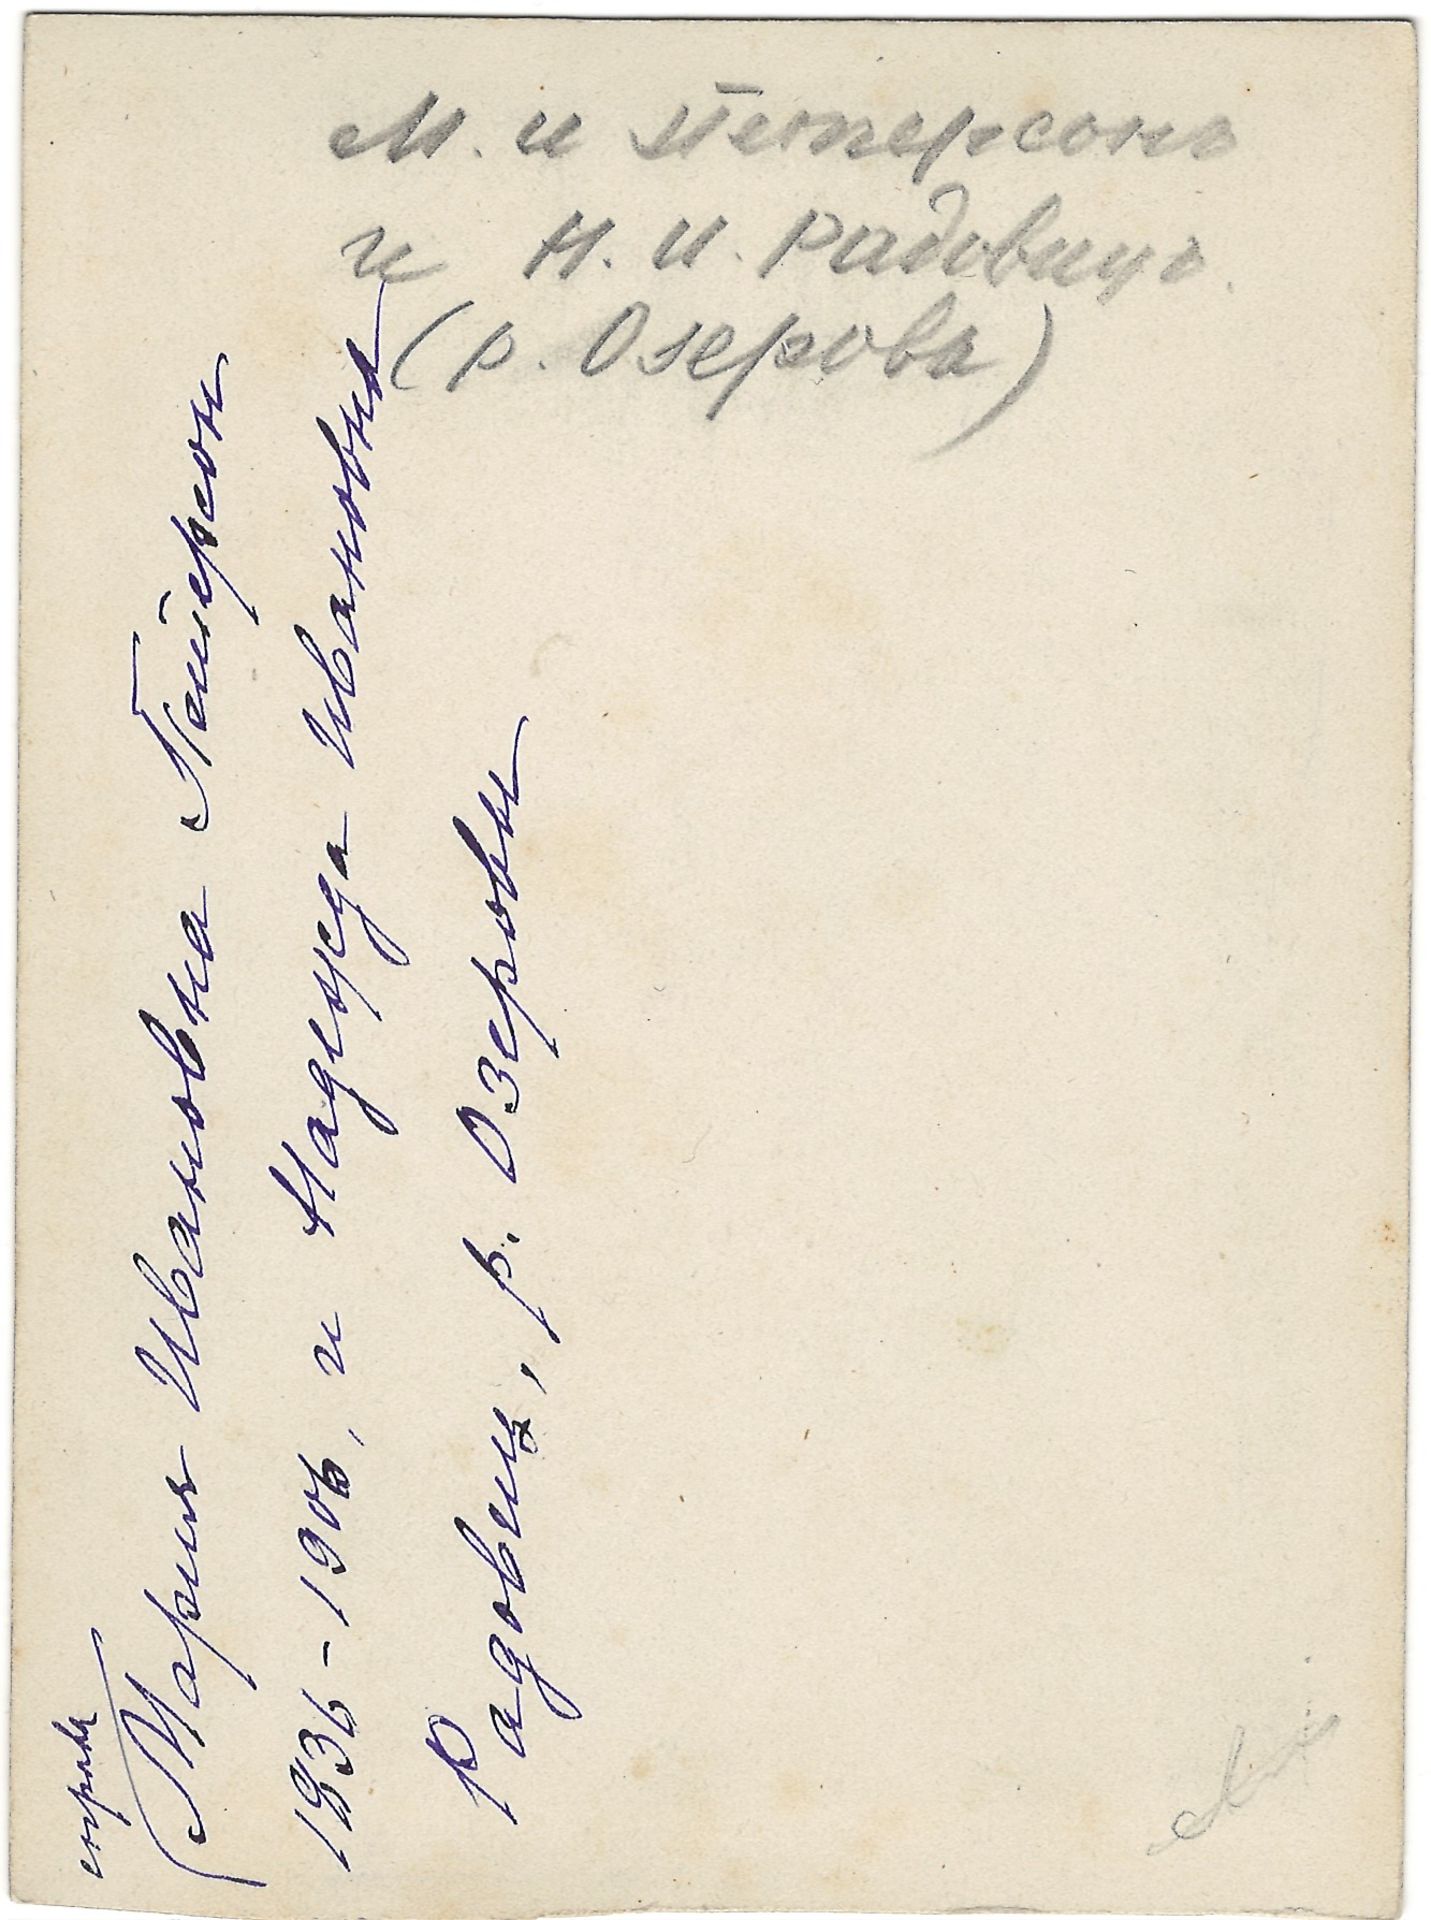 М. и Петерсонъ
и Н. И. Радовицъ.
(р. Озерова)
справа
Мария Ивановна Петерсон
1836-1906, и Надежда Ивановна
Радовиц, р. Озеровы